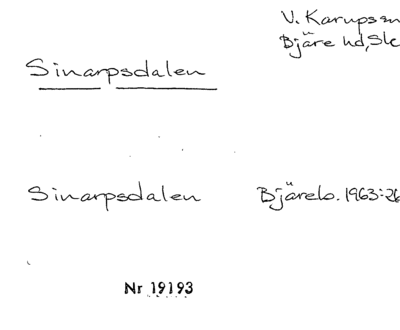 V. Karups sn
Bjäre hd, Sk
Sinarpsdalen
Sinarpsdalen Bjärelo. 1963:26
Nr 19193